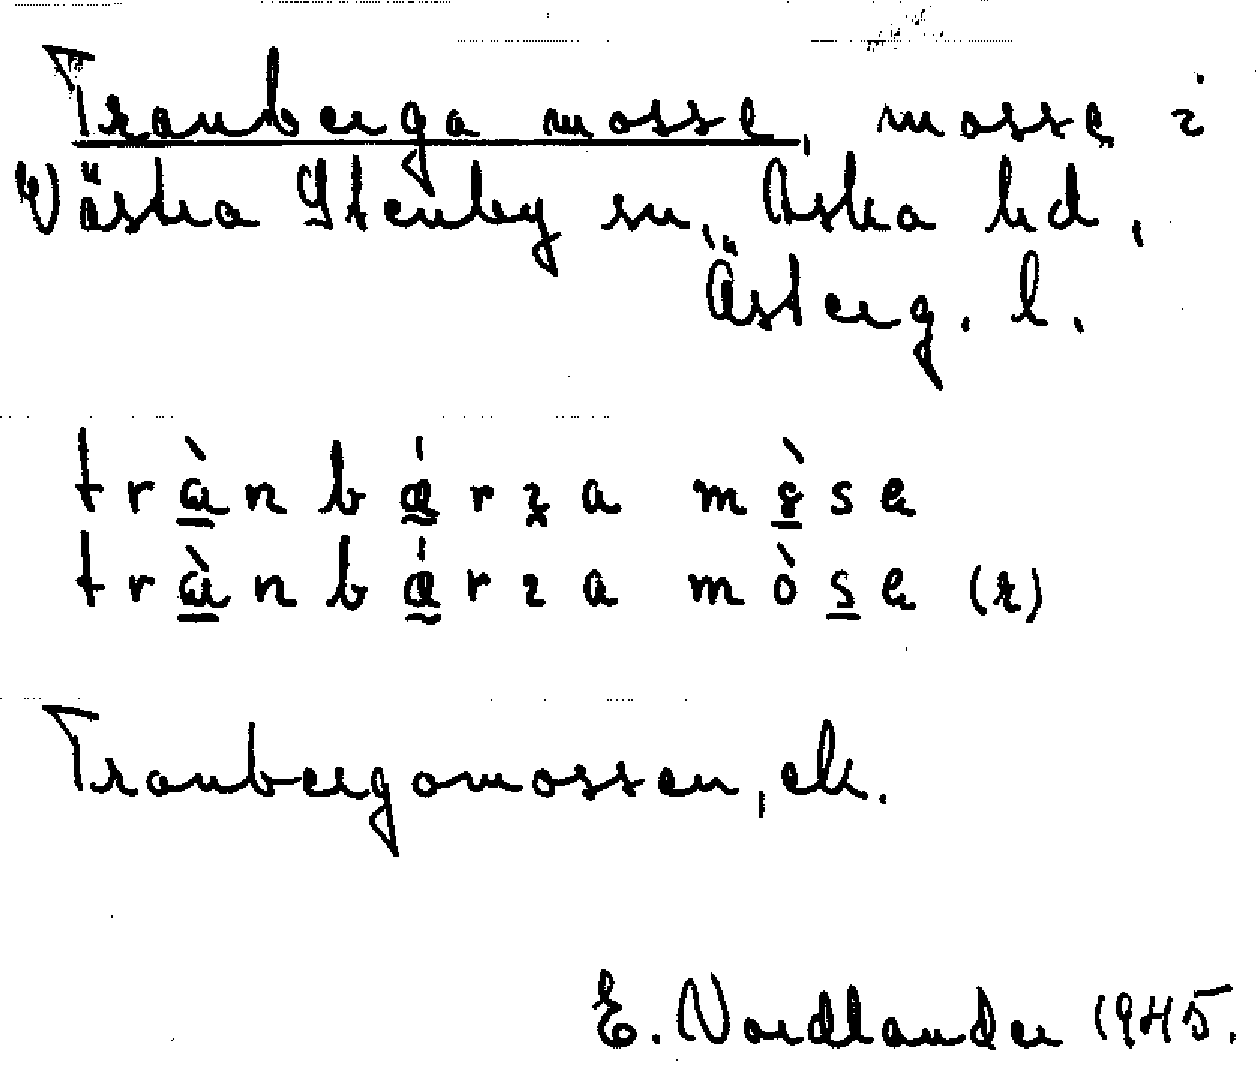 Tranberga mosse, mosse i
Västra Stenby sn, Aska hd,
Österg. l.
trànbǽrza mòse
trànbǽrza mòse (r)
Tranbergamossen, ek.
E. Nordlander 1945.